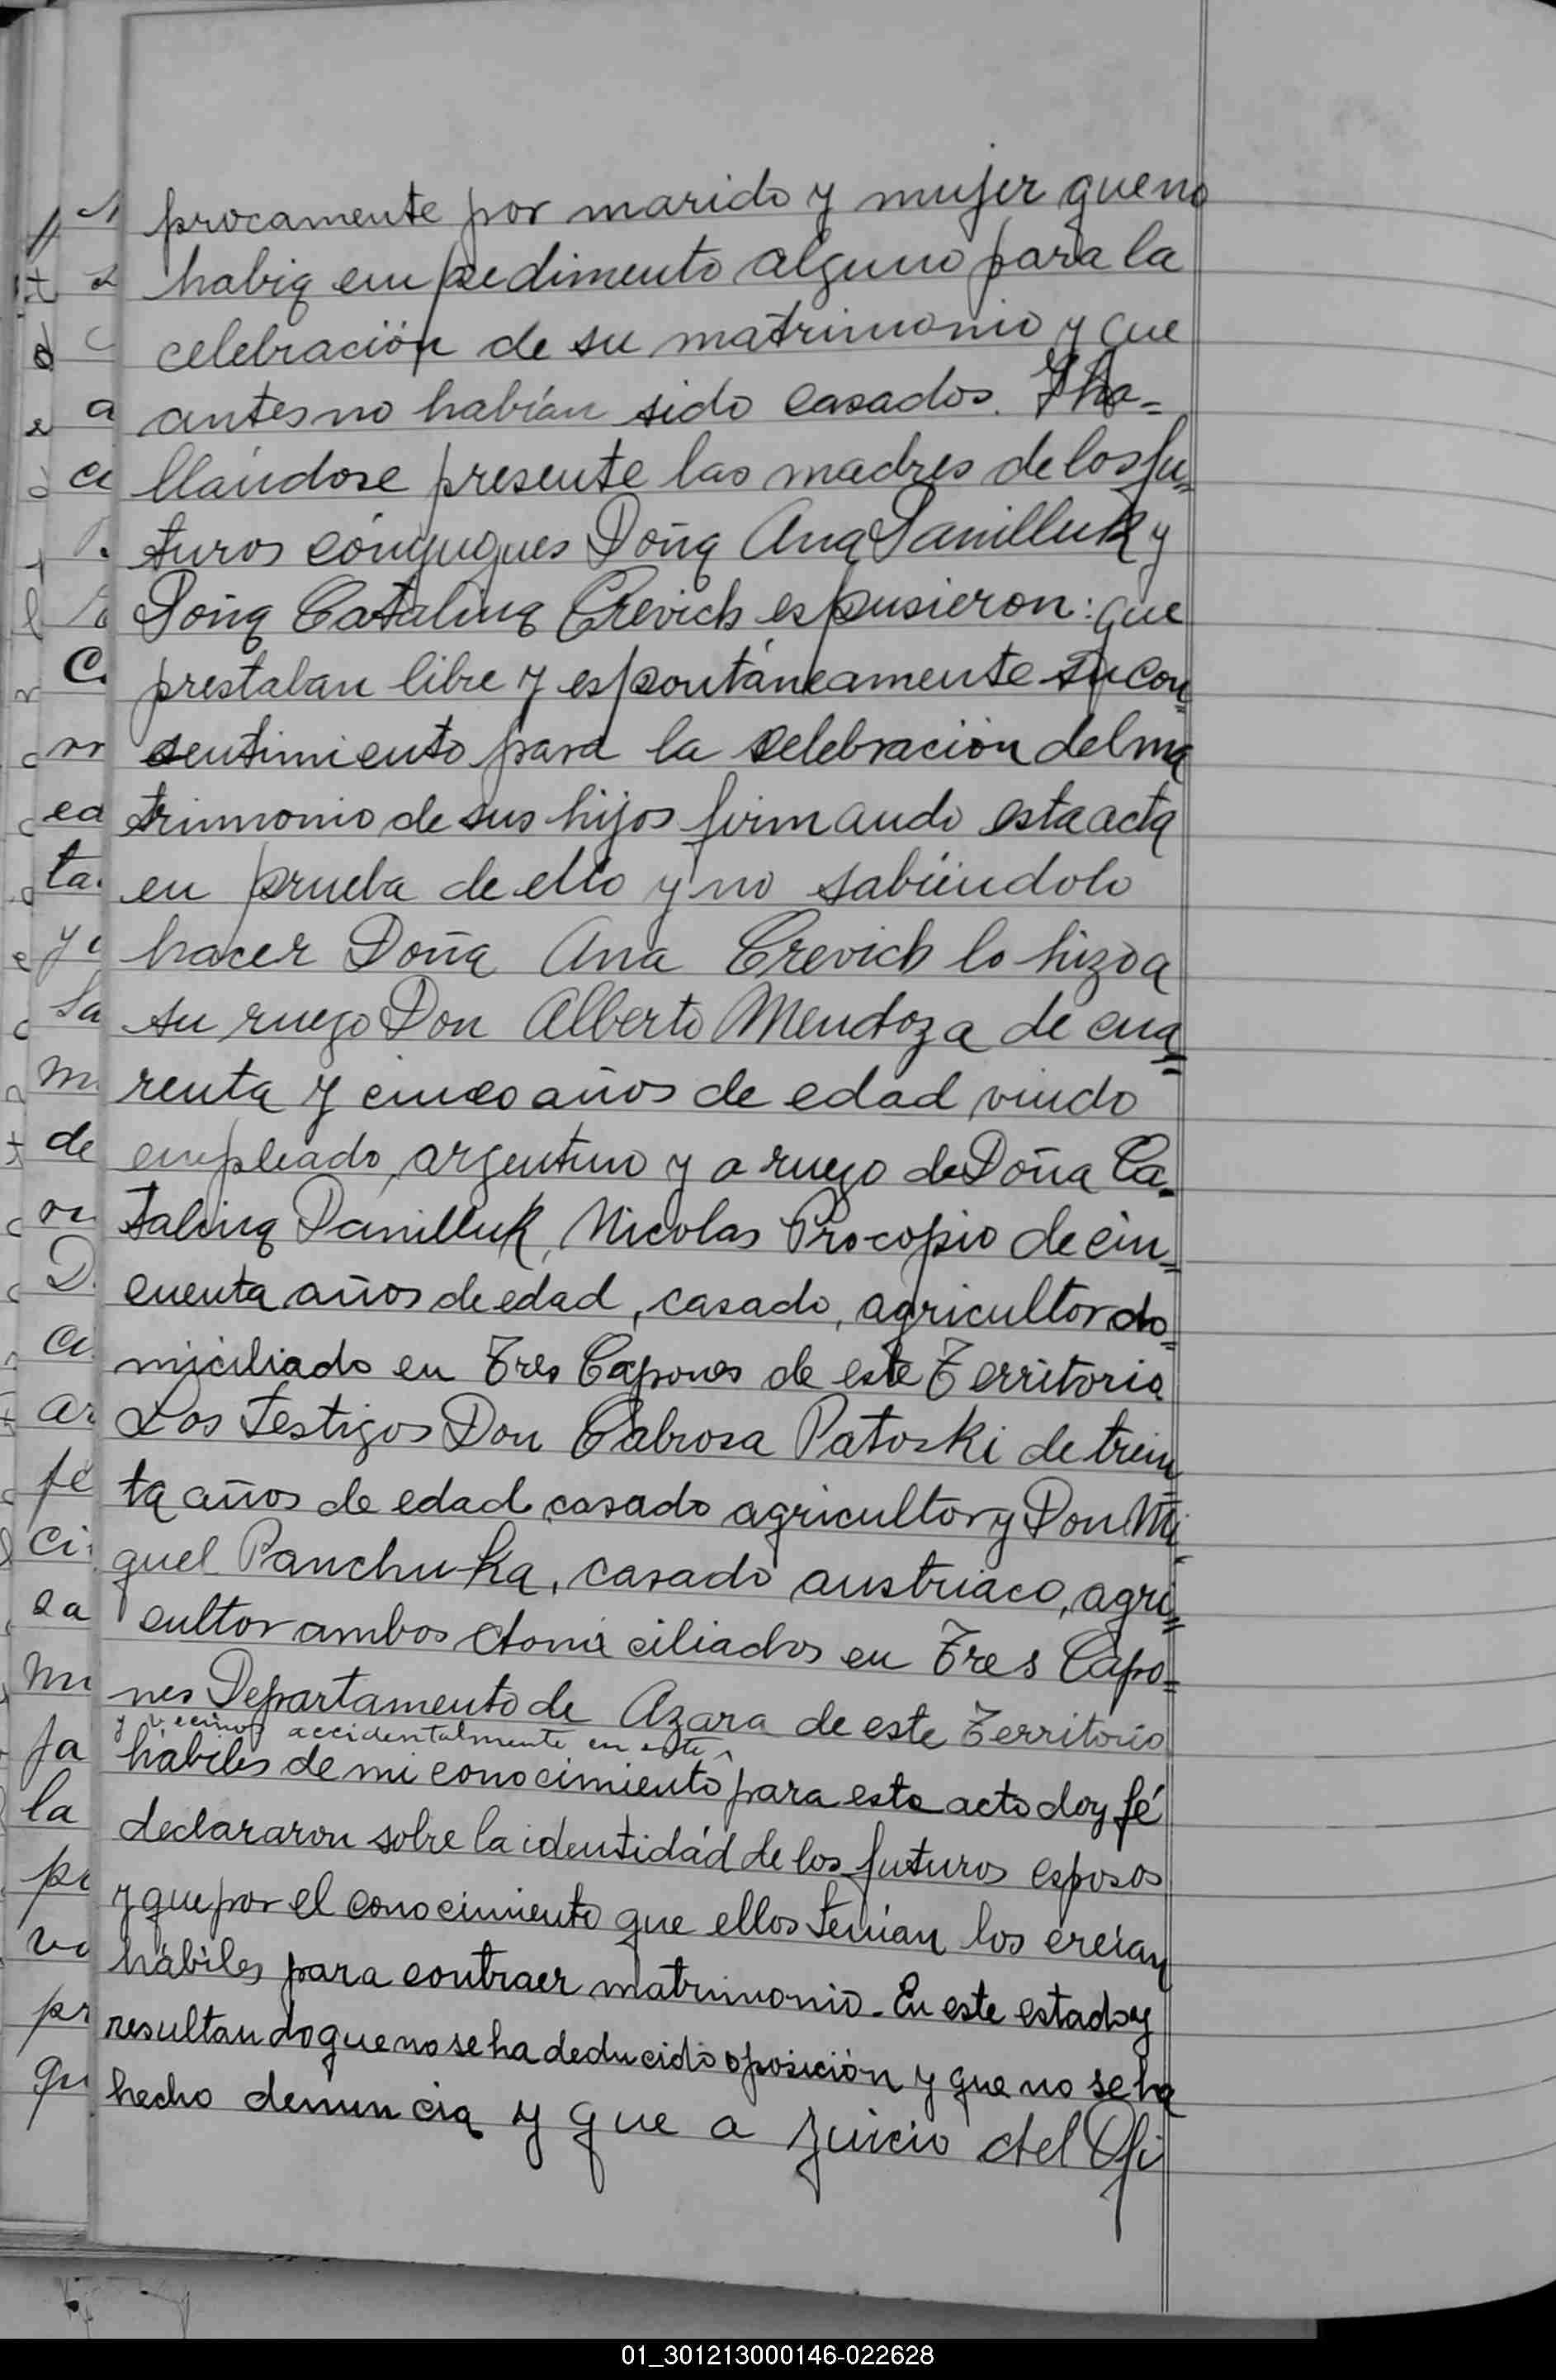 procamente por marido y mujer que no
habia empedimento alguno para la
celebración de su matrimonio y que
antes no habían sido casados. Y ha=
llándose presente las madres de los fu=
turos cónyugues Doña Ana Danilluk y
Doña Catalina Crevich espusieron: que
prestaban libre y espontáneamente su con=
sentimiento para la celebración del ma
trimonio de sus hijos firmando esta acta
en prueba de ello y no sabiéndolo
hacer Doña Ana Crevich lo hizo a
su ruego Don Alberto Mendoza de cua=
renta y cinco años de edad viudo
empleado, argentino y a ruego de Doña Ca-
talina Danilluk, Nicolas Procopio de cin=
cuenta años de edad, casado, agricultor do=
miciliado en Tres Capones de este Territorio
Los testigos Don Cabrosa Patoski de trein
ta años de edad casado agricultor y Don Mi-
guel Panchu-ka, casado austriaco, agri=
cultor ambos domiciliados en Tres Capo=
nes Departamento de Azara de este Territorio
y vecinos accidentalmente en este
hábiles de mi conocimiento para este acto doy fé
declararon sobre la identidád de los futuros esposos
y que por el conocimiento que ellos tenían los creían
hábiles para contraer matrimonio. En este estado y
resultando que no se ha deducido oposición y que no se ha
hecho denuncia y que a juicio del Ofi
01_301213000146-022628